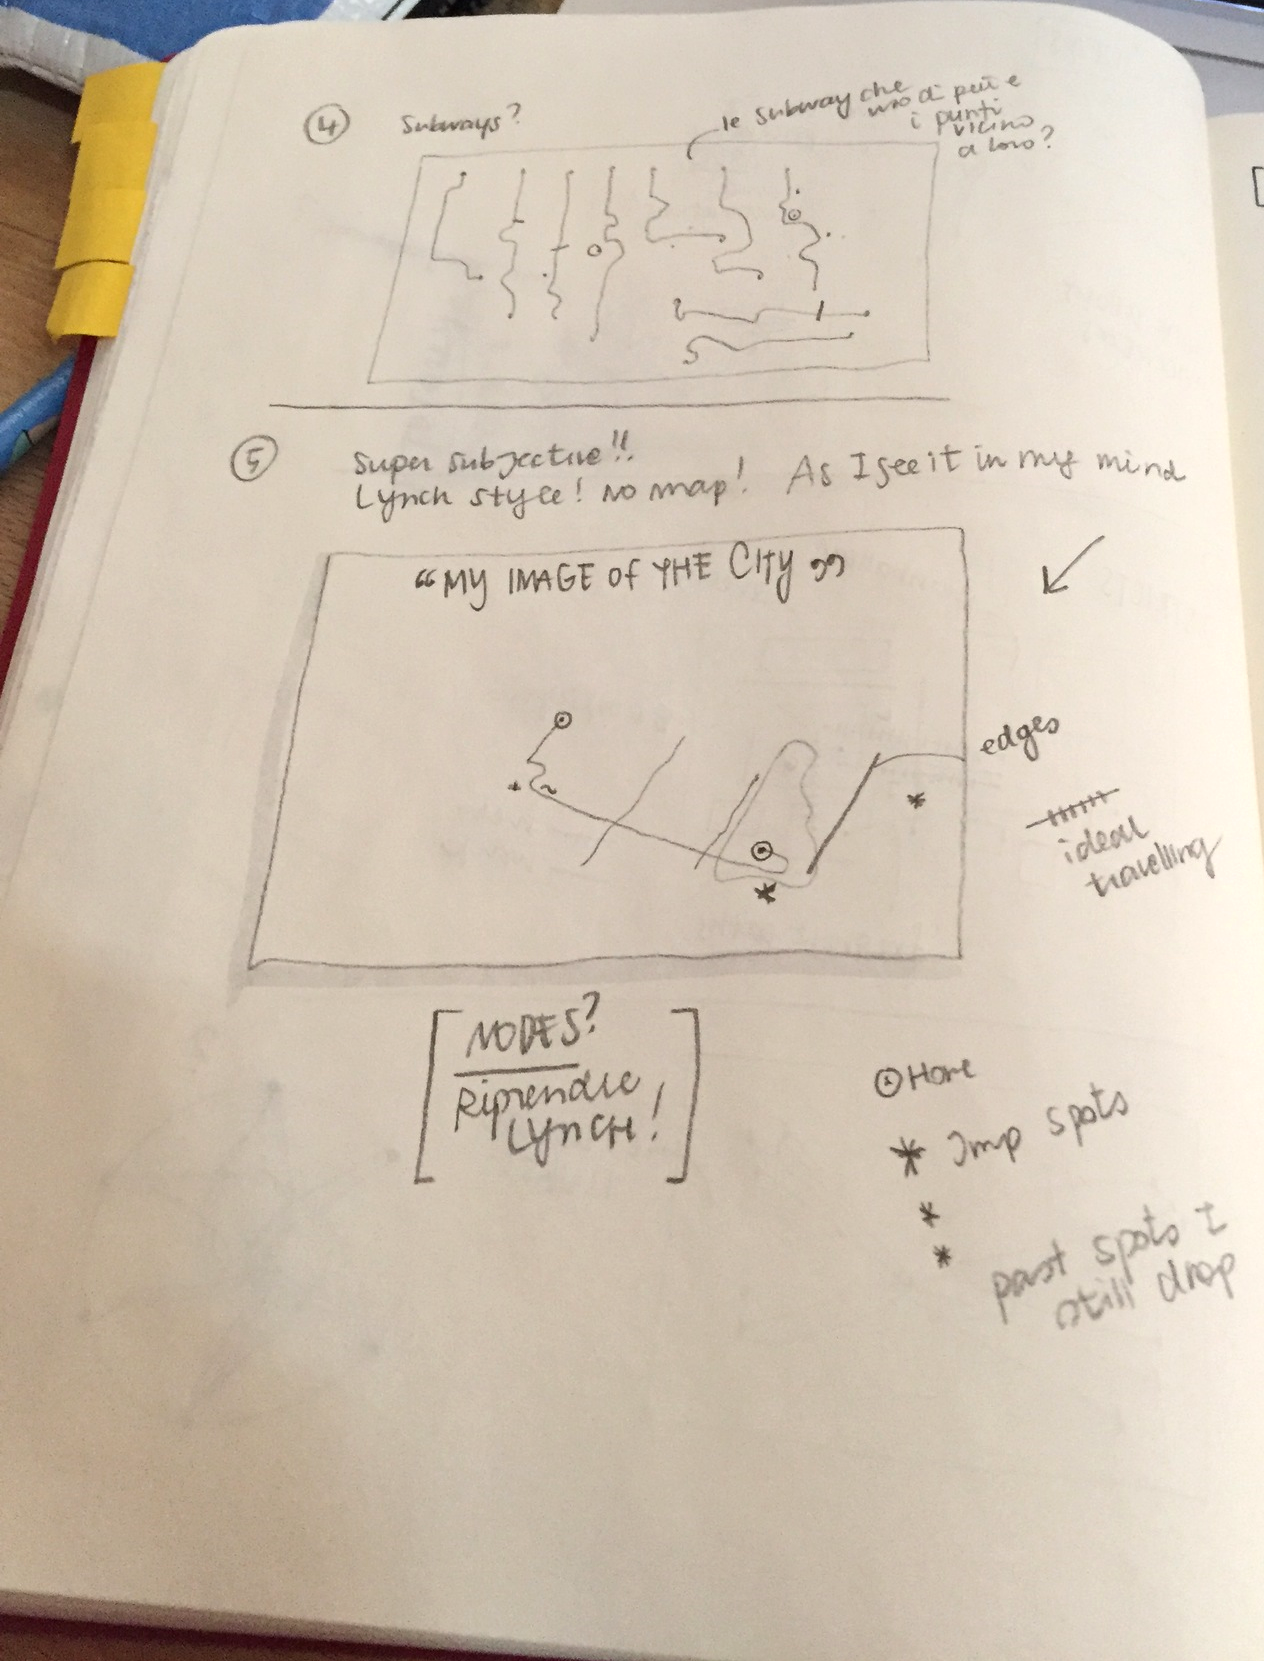 4 Subways?
le subway che
uso di più e
i punti
vicino
a loro?
5 Super subjective!!
Lynch style! No map! As I see it in my mind
“MY IMAGE OF THE CITY”
edges
ideal
travelling
NODES?
Riprendere
LYNCH!
Home
* Imp spots
*
*
past spots I
still drop